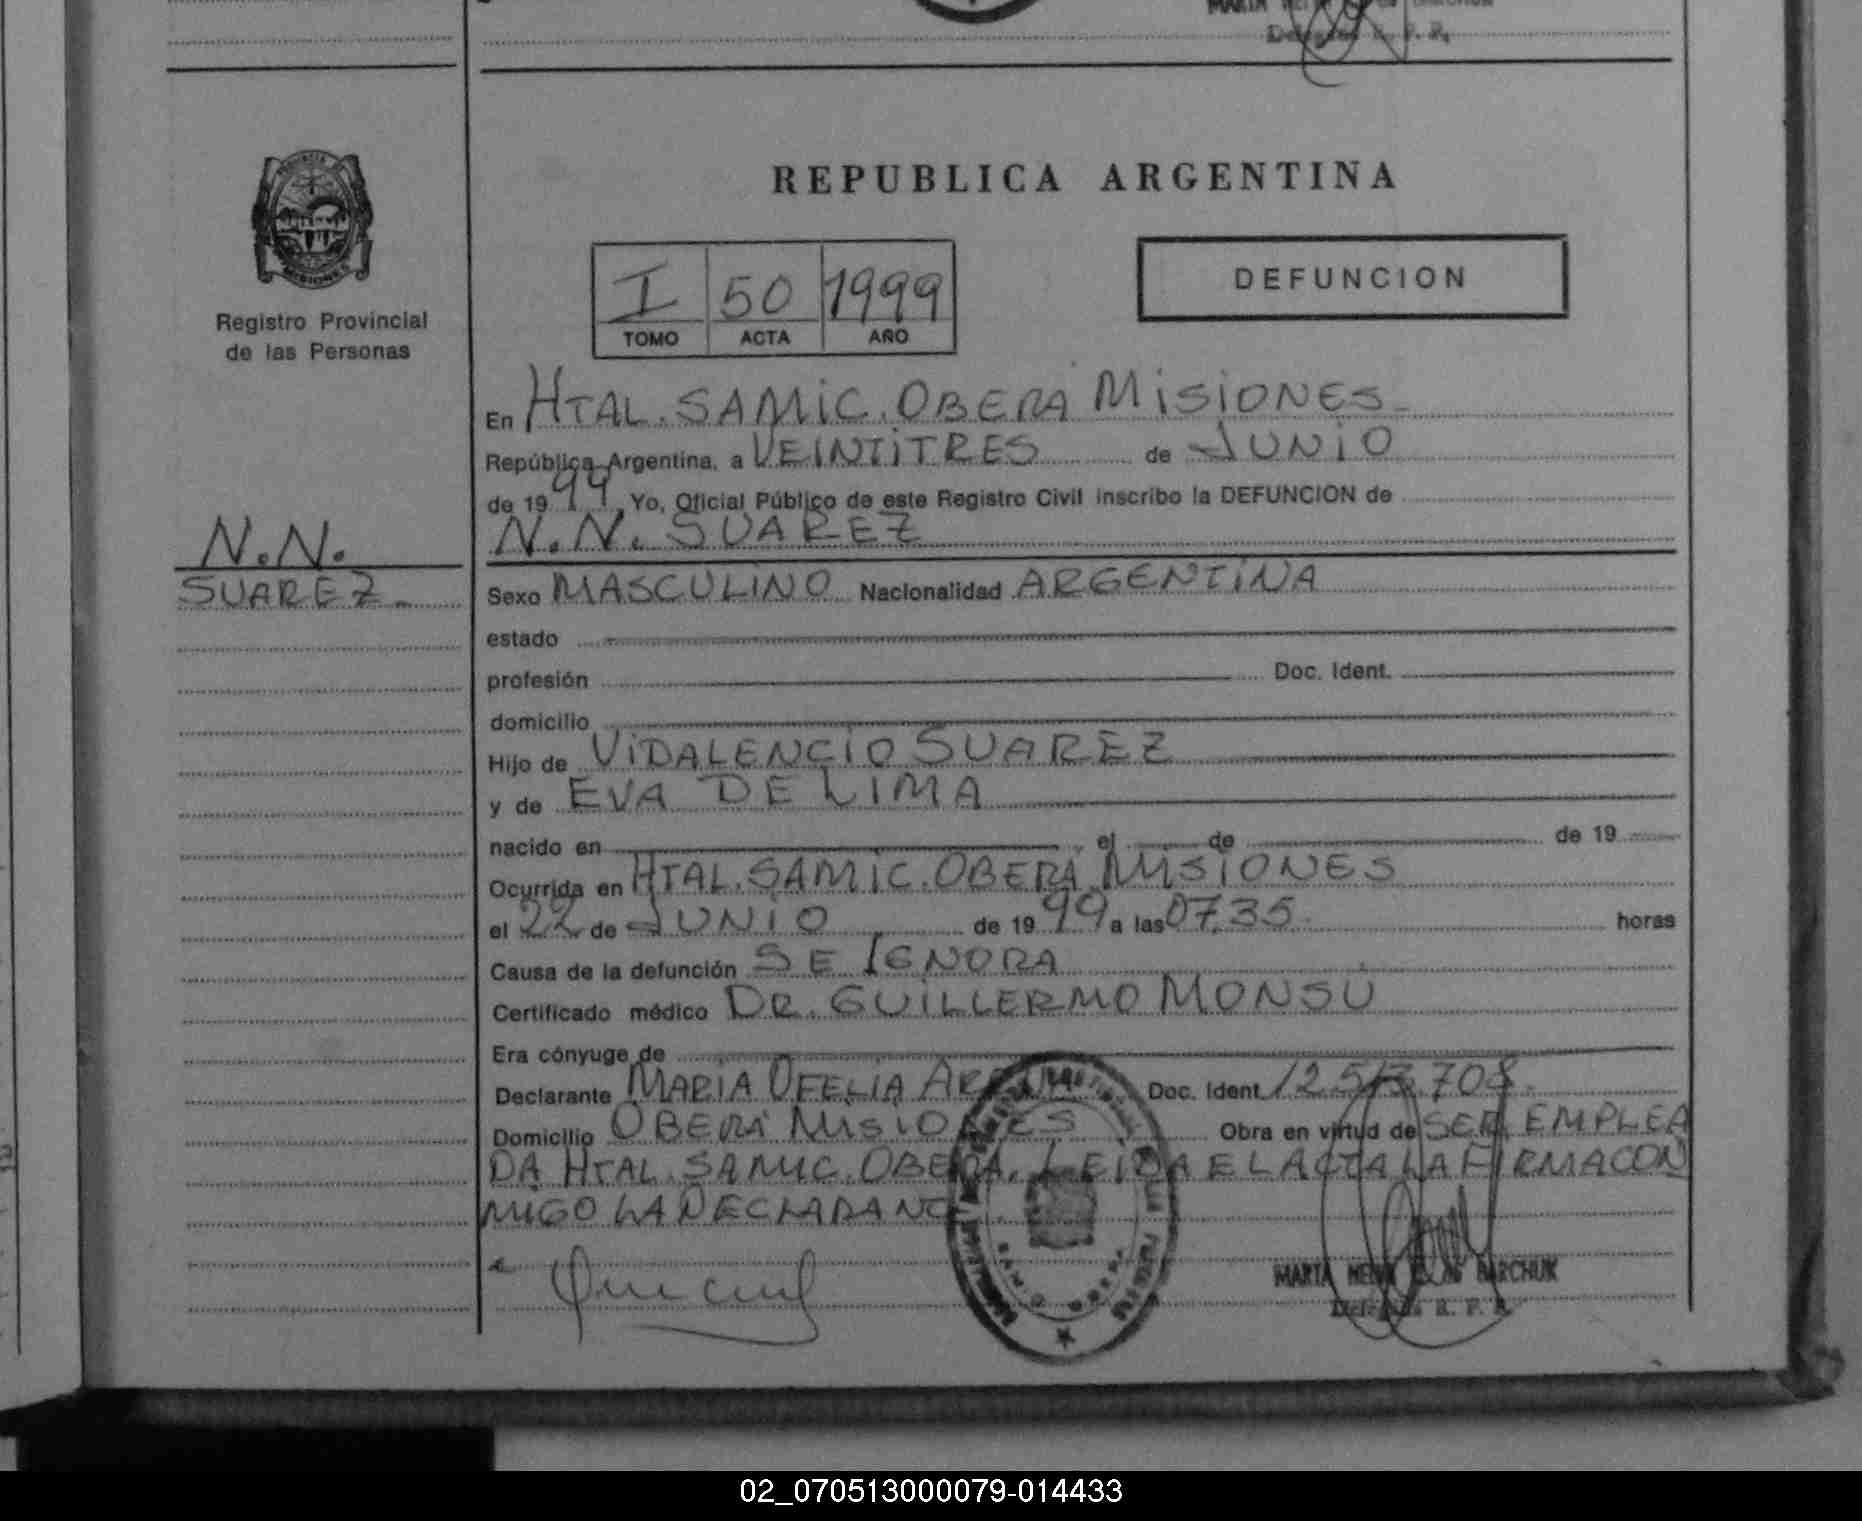 Delegada R. P. P.
REPUBLICA ARGENTINA
MISIONES
Registro Provincial
de las Personas
I 50 1999
TOMO ACTA AÑO
DEFUNCION
En HTAL. SAMIC. OBERA MISIONES
República Argentina, a VEINTITRES de JUNIO
de 1999, Yo, Oficial Público de este Registro Civil inscribo la DEFUNCION de
N.N. SUAREZ
N.N.
SUAREZ
Sexo MASCULINO Nacionalidad ARGENTINA
estado
profesión Doc. Ident.
domicilio
Hijo de VIDALENCIO SUAREZ
y de EVA DE LIMA
nacido en , el de de 19
Ocurrida en HTAL. SAMIC. OBERA MISIONES
el 22 de JUNIO de 1999 a las 07.35 horas
Causa de la defunción SE IGNORA
Certificado médico DR. GUILLERMO MONSU
Era cónyuge de
Declarante MARIA OFELIA Doc. Ident
Domicilio OBERÁ MISIONES Obra en virtud de SER EMPLEA
DA HTAL. SAMIC. OBERA. LEIDA EL ACTA LA FIRMA CON
MIGO LA DECLARANT
e
MARTA BARCHUK
Delegada R. P. P.
02_070513000079-014433